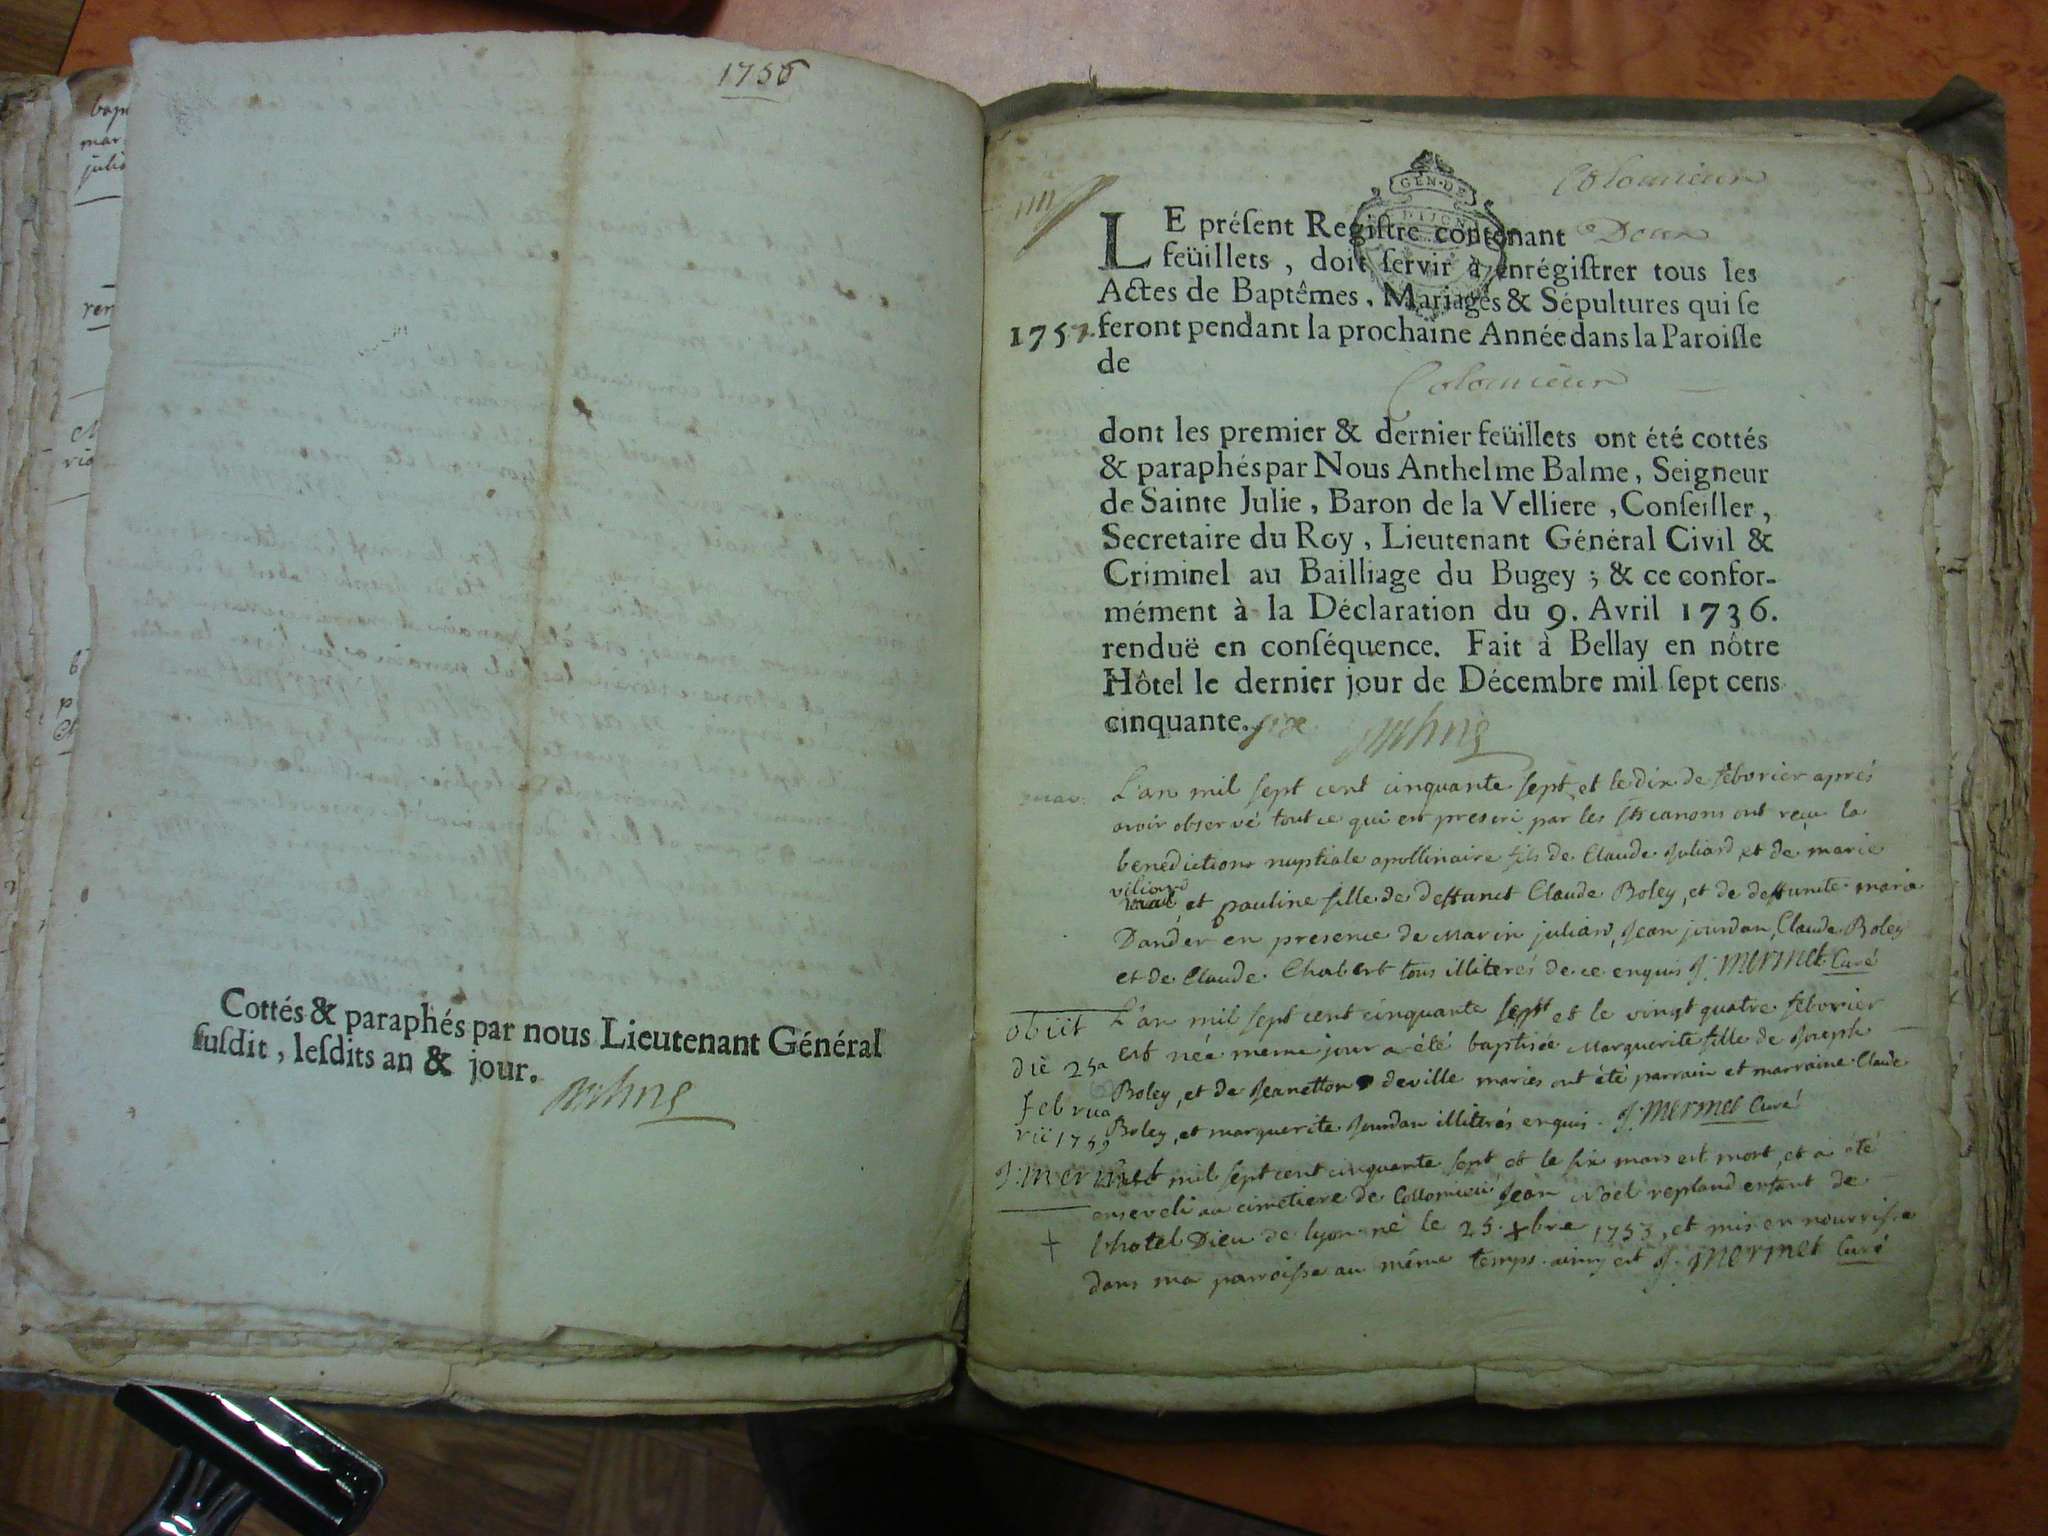 1756
Cottés & paraphés par nous Lieutenant Général
ſuſdit, leſdits an & jour.
bap
mar
julia
GEN·DE
DIJON
Colomieux
LE préſent Regiſtre contenant Douze
feüillets, doit ſervir à enrégiſtrer tous les
Actes de Baptêmes, Mariages & Sépultures qui ſe
1757. feront pendant la prochaine Année dans la Paroiſſe
de
Colomieux
dont les premier & dernier feüillets ont été cottés
& paraphés par Nous Anthelme Balme, Seigneur
de Sainte Julie, Baron de la Velliere, Conſeiller,
Secretaire du Roy, Lieutenant Général Civil &
Criminel au Bailliage du Bugey; & ce confor-
mément à la Déclaration du 9. Avril 1736.
renduë en conſéquence. Fait à Bellay en nôtre
Hôtel le dernier jour de Décembre mil ſept cens
cinquante. ſix
mar. L'an mil sept cent cinquante sept, et le dix de feborier aprés
avoir observé tout ce qui est prescri par les sts canons ont reçu la
benediction nuptiale apollinaire fils de Claude Juliard et de marie
et pauline fille de deffunct Claude Boley, et de deffuncte maria
Dander en presence de Marin juliard, Jean jourdan, Claude Boley
et de Claude Chabert tous illiterés de ce enquis J: mermet Curé
L'an mil sept cent cinquante sept et le vingt quatre feborier
est née meme jour a été baptisée Marguerite fille de Joseph
Boley, et de Jeanetton deville mariés ont été parrain et marraine Claude
Boley, et marguerite Jourdan illiterés enquis. J: mermet Curé
obiit
die 25a
februa
rii 1759
J: mermet
L'an mil sept cent cinquante sept et le six mars est mort, et a été
enseveli au cimetiere de Collomieu Jean Noel repland enfant de
l'hotel Dieu de lyon né le 25. xbre 1753, et mis en nourrisse
dans ma parroisse au même temps. ainsy est J. mermet Curé